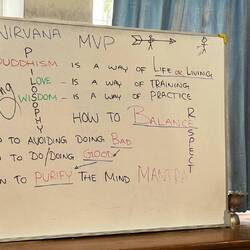 NIRVANA MVP
BUDDHISM - IS A WAY OF LIFE OR LIVING
LOVE - IS A WAY OF TRAINING
WISDOM - IS A WAY OF PRACTICE
PHILOSOPHY
HOW TO BALANCE
RESPECT
TO AVOIDING DOING BAD
TO DO/DOING GOOD
TO PURIFY THE MIND MANTRA